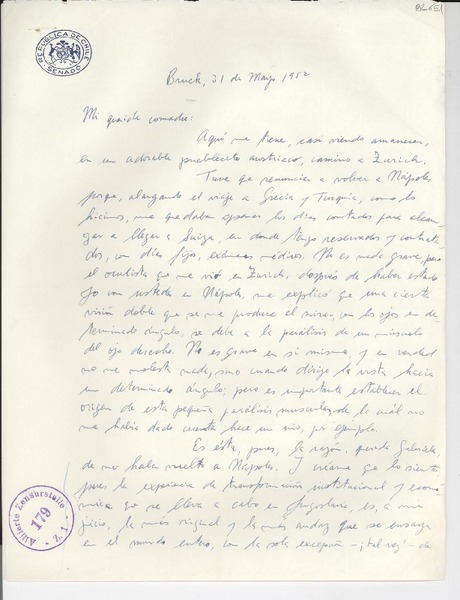 REPUBLICA DE CHILE
SENADO
Bruck, 31 de Mayo 1952
Mi querida comadre:
Aquí me tiene, casi viendo amanecer,
en un adorable pueblecito austriaco, camino a Zurich.
Tuve que renunciar a volver a Nápoles
porque, alargando el viaje a Grecia y Turquía, como lo
hicimos, me quedaban apenas los días contados para alcan-
zar a llegar a Suiza, en donde tengo reservados y contrata-
dos, con días fijos, exámenes médicos. No es nada grave, pero
el oculista que me vió en Zurich, después de haber estado
yo con ustedes en Nápoles, me explicó que una cierta
visión doble que se me produce al mirar, con los ojos en de-
terminado ángulo, se debe a la parálisis de un músculo
del ojo derecho. No es grave en sí mismo, y en verdad
no me molesta nada, sino cuando dirijo la vista hacia
un determinado ángulo; pero es importante establecer el
origen de esta pequeña parálisis muscular, de la cuál no
me había dado cuenta hace un año, por ejemplo.
Es ésta, pues, la razón, querida Gabriela,
de no haber vuelto a Nápoles. Y créame que lo siento
pues la experiencia de transformación institucional y econó-
mica que se lleva a cabo en Yugoslavia, es, a mi
juicio, la más original y la más audaz que se ensaya
en el mundo entero, con la sola excepción -¡tal vez!- de
Alliierte Zensurstelle
179
Z. 1.